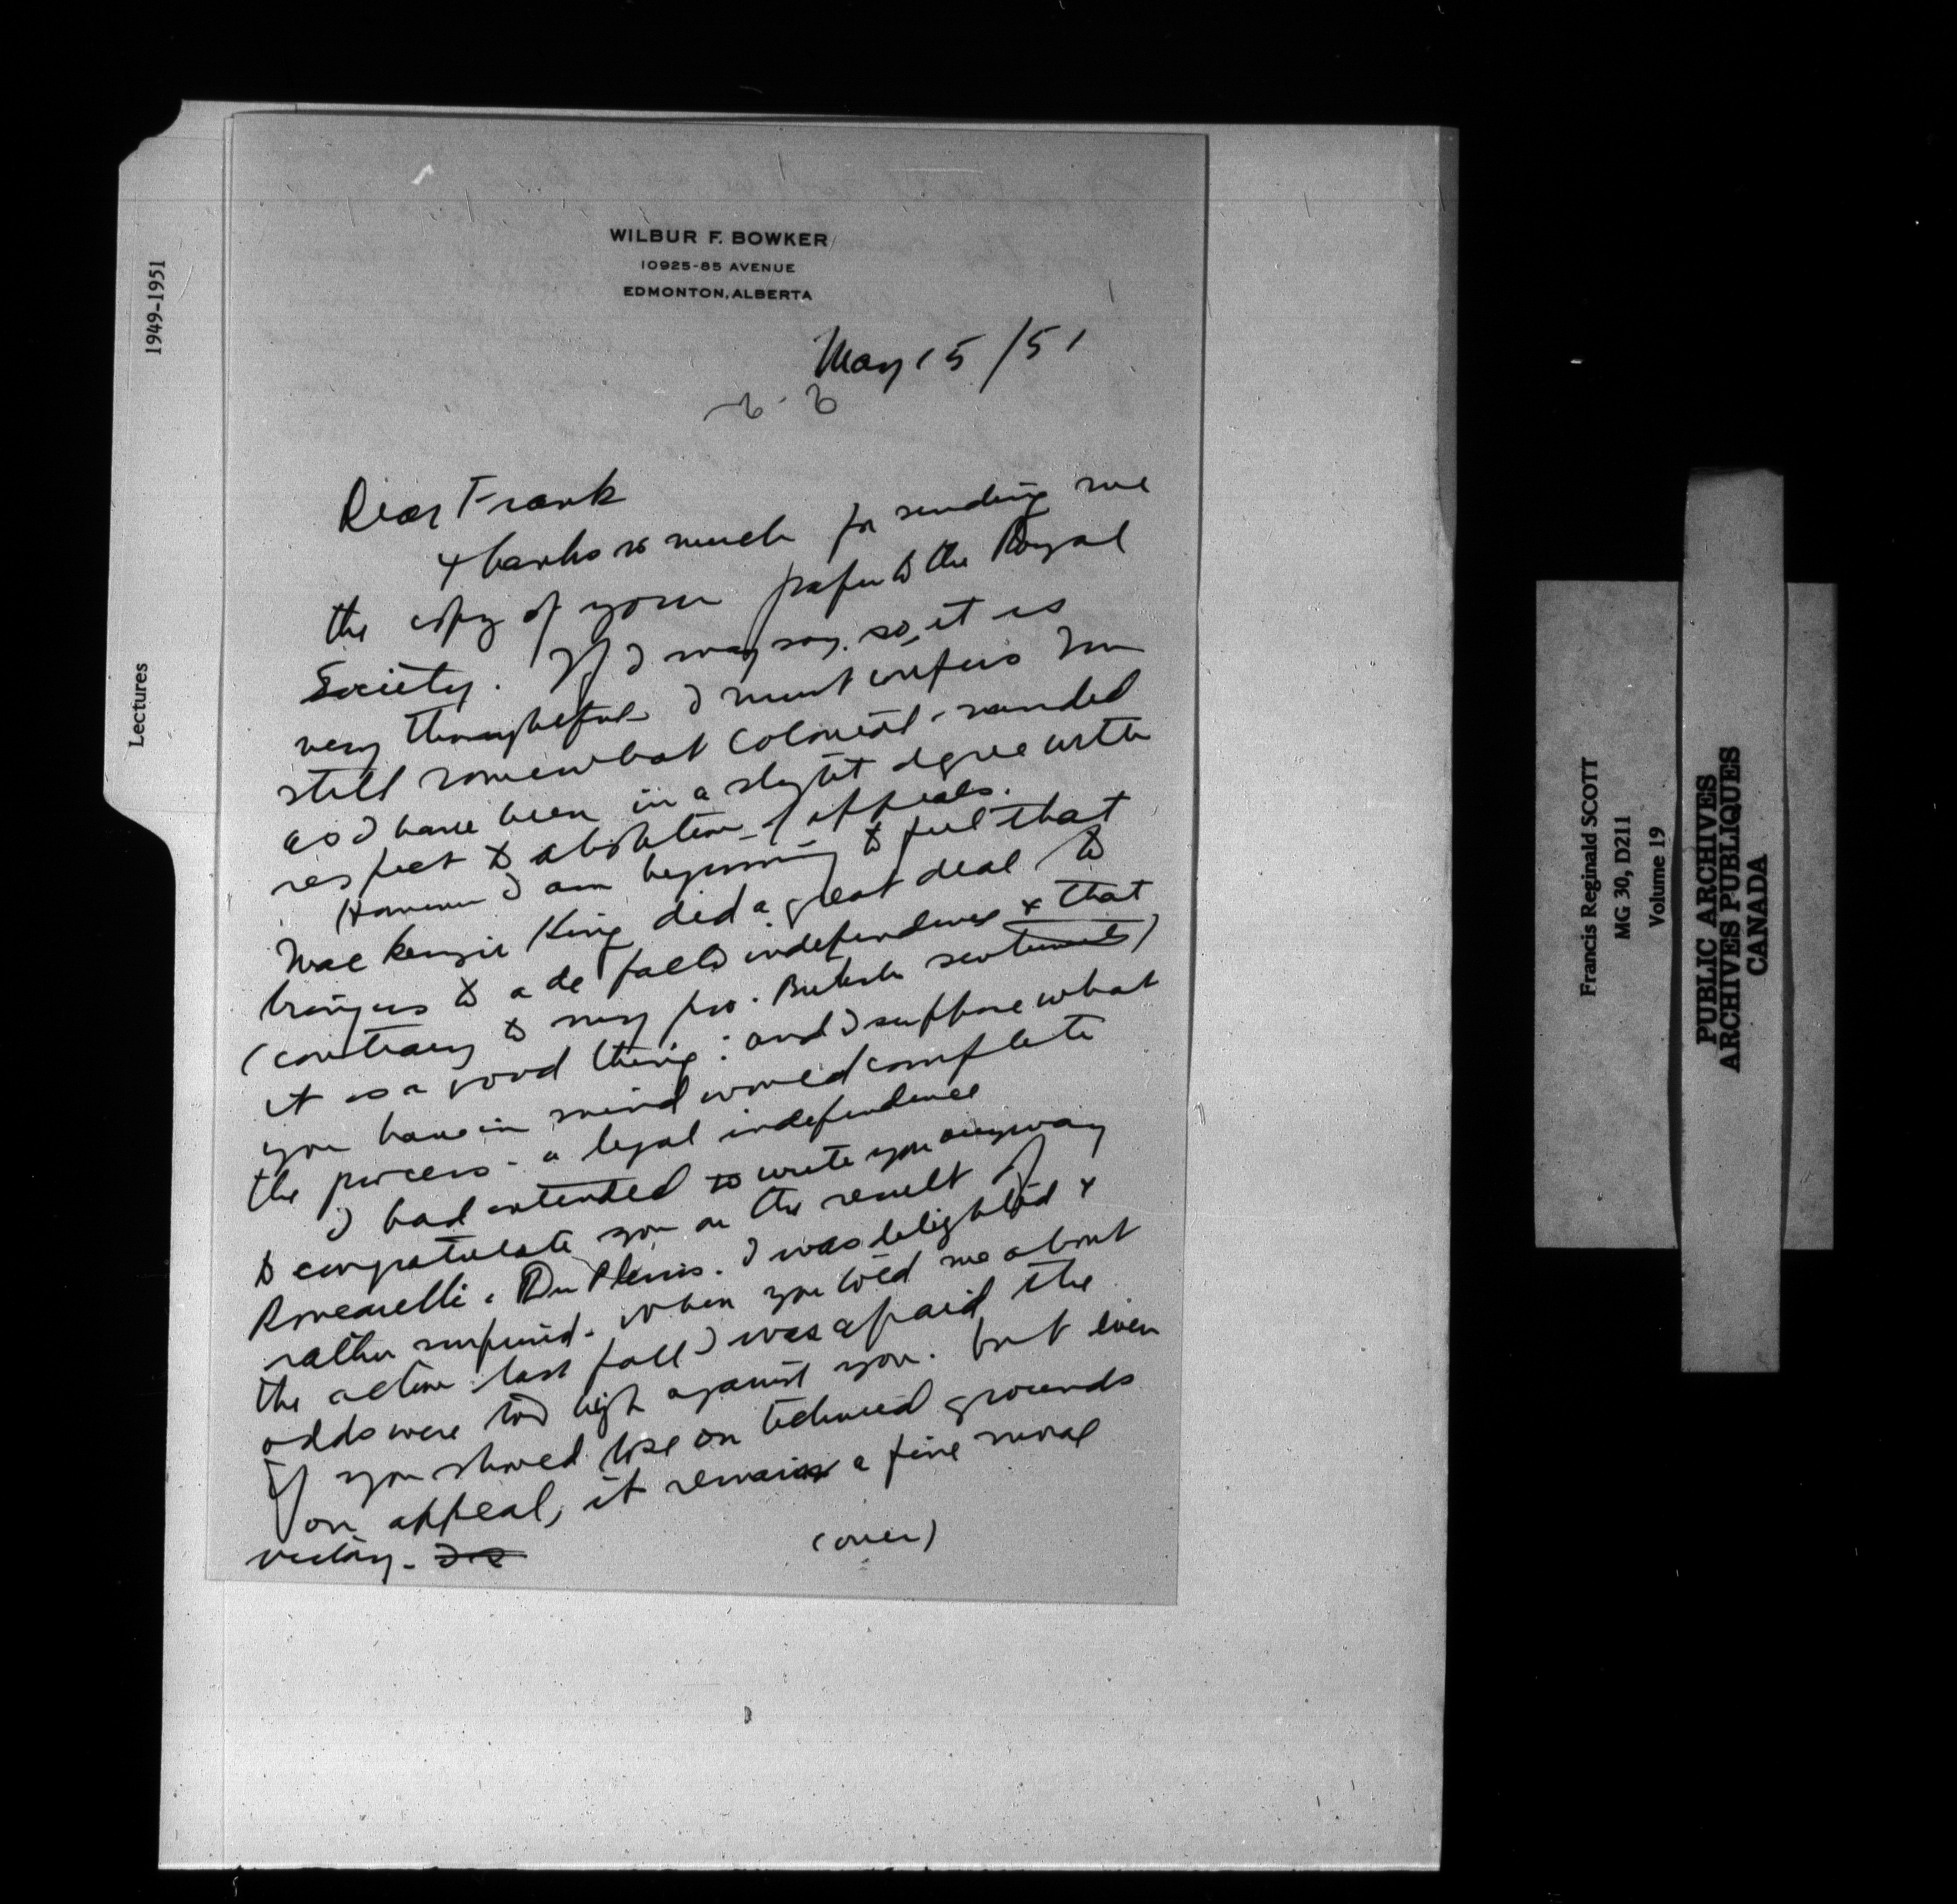 WILBUR F. BOWKER
10925-85 AVENUE
EDMONTON, ALBERTA
May 15/51
Dear Frank
Thanks so much for sending me
the copy of your paper to the Royal
Society. If I may say so, it is
very thoughtful. I must confess I'm
still somewhat colonial-minded
as I have been in a slight degree with
respect to abolition of appeals.
However I am beginning to feel that
MacKenzie King did a great deal to
bring us to a de facto independence & that
(contrary to my pro-British sentiments)
it is a good thing: and I suppose what
you have in mind would complete
the process - a legal independence
I had intended to write you anyway
to congratulate you on the result of
Roncarelli v Du Plessis. I was delighted &
rather surprised. When you told me about
the action last fall I was afraid the
odds were too high against you. But even
if you should lose on technical grounds
on appeal, it remains a fine moral
victory.
(over)
1949-1951
Lectures
Francis Reginald SCOTT
MG 30, D211
Volume 19
PUBLIC ARCHIVES
ARCHIVES PUBLIQUES
CANADA